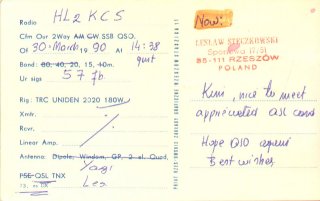 Radio HL2KCS
Cfm Our 2Way AM CW SSB QSO.
Of 30-March 1990 At 14:38
gmt
Band: 80, 40, 20, 15, 10m.
Ur sigs 57
Rig: TRC UNIDEN 2020 180W.
Xmtr.
Rcvr.
Linear Amp.
Antenna: Dipole, Windom, GP, 2 el. Quad,
Yagi
PSE QSL TNX
73, es DX Les
Now:
LESŁAW STECZKOWSKI
35-111 RZESZÓW
POLAND
Kim, nice to meet
appreciated all cards
Hope QSO again
Best wishes